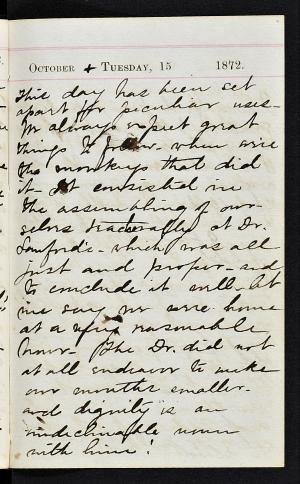 October + Tuesday, 15 1872.
This day has been set
apart for peculiar uses -
We always expect great
things to follow - when wise
the monkeys that did
it - It consisted in
the assembling of our-
selves at Dr.
Sanford's - which was all
just and proper - and
to conclude it well - let
me say we were home
at a very reasonable
hour - The Dr. did not
at all endeavor to make
our mouths smaller.
and dignity is an
undeclinable noun
with him!